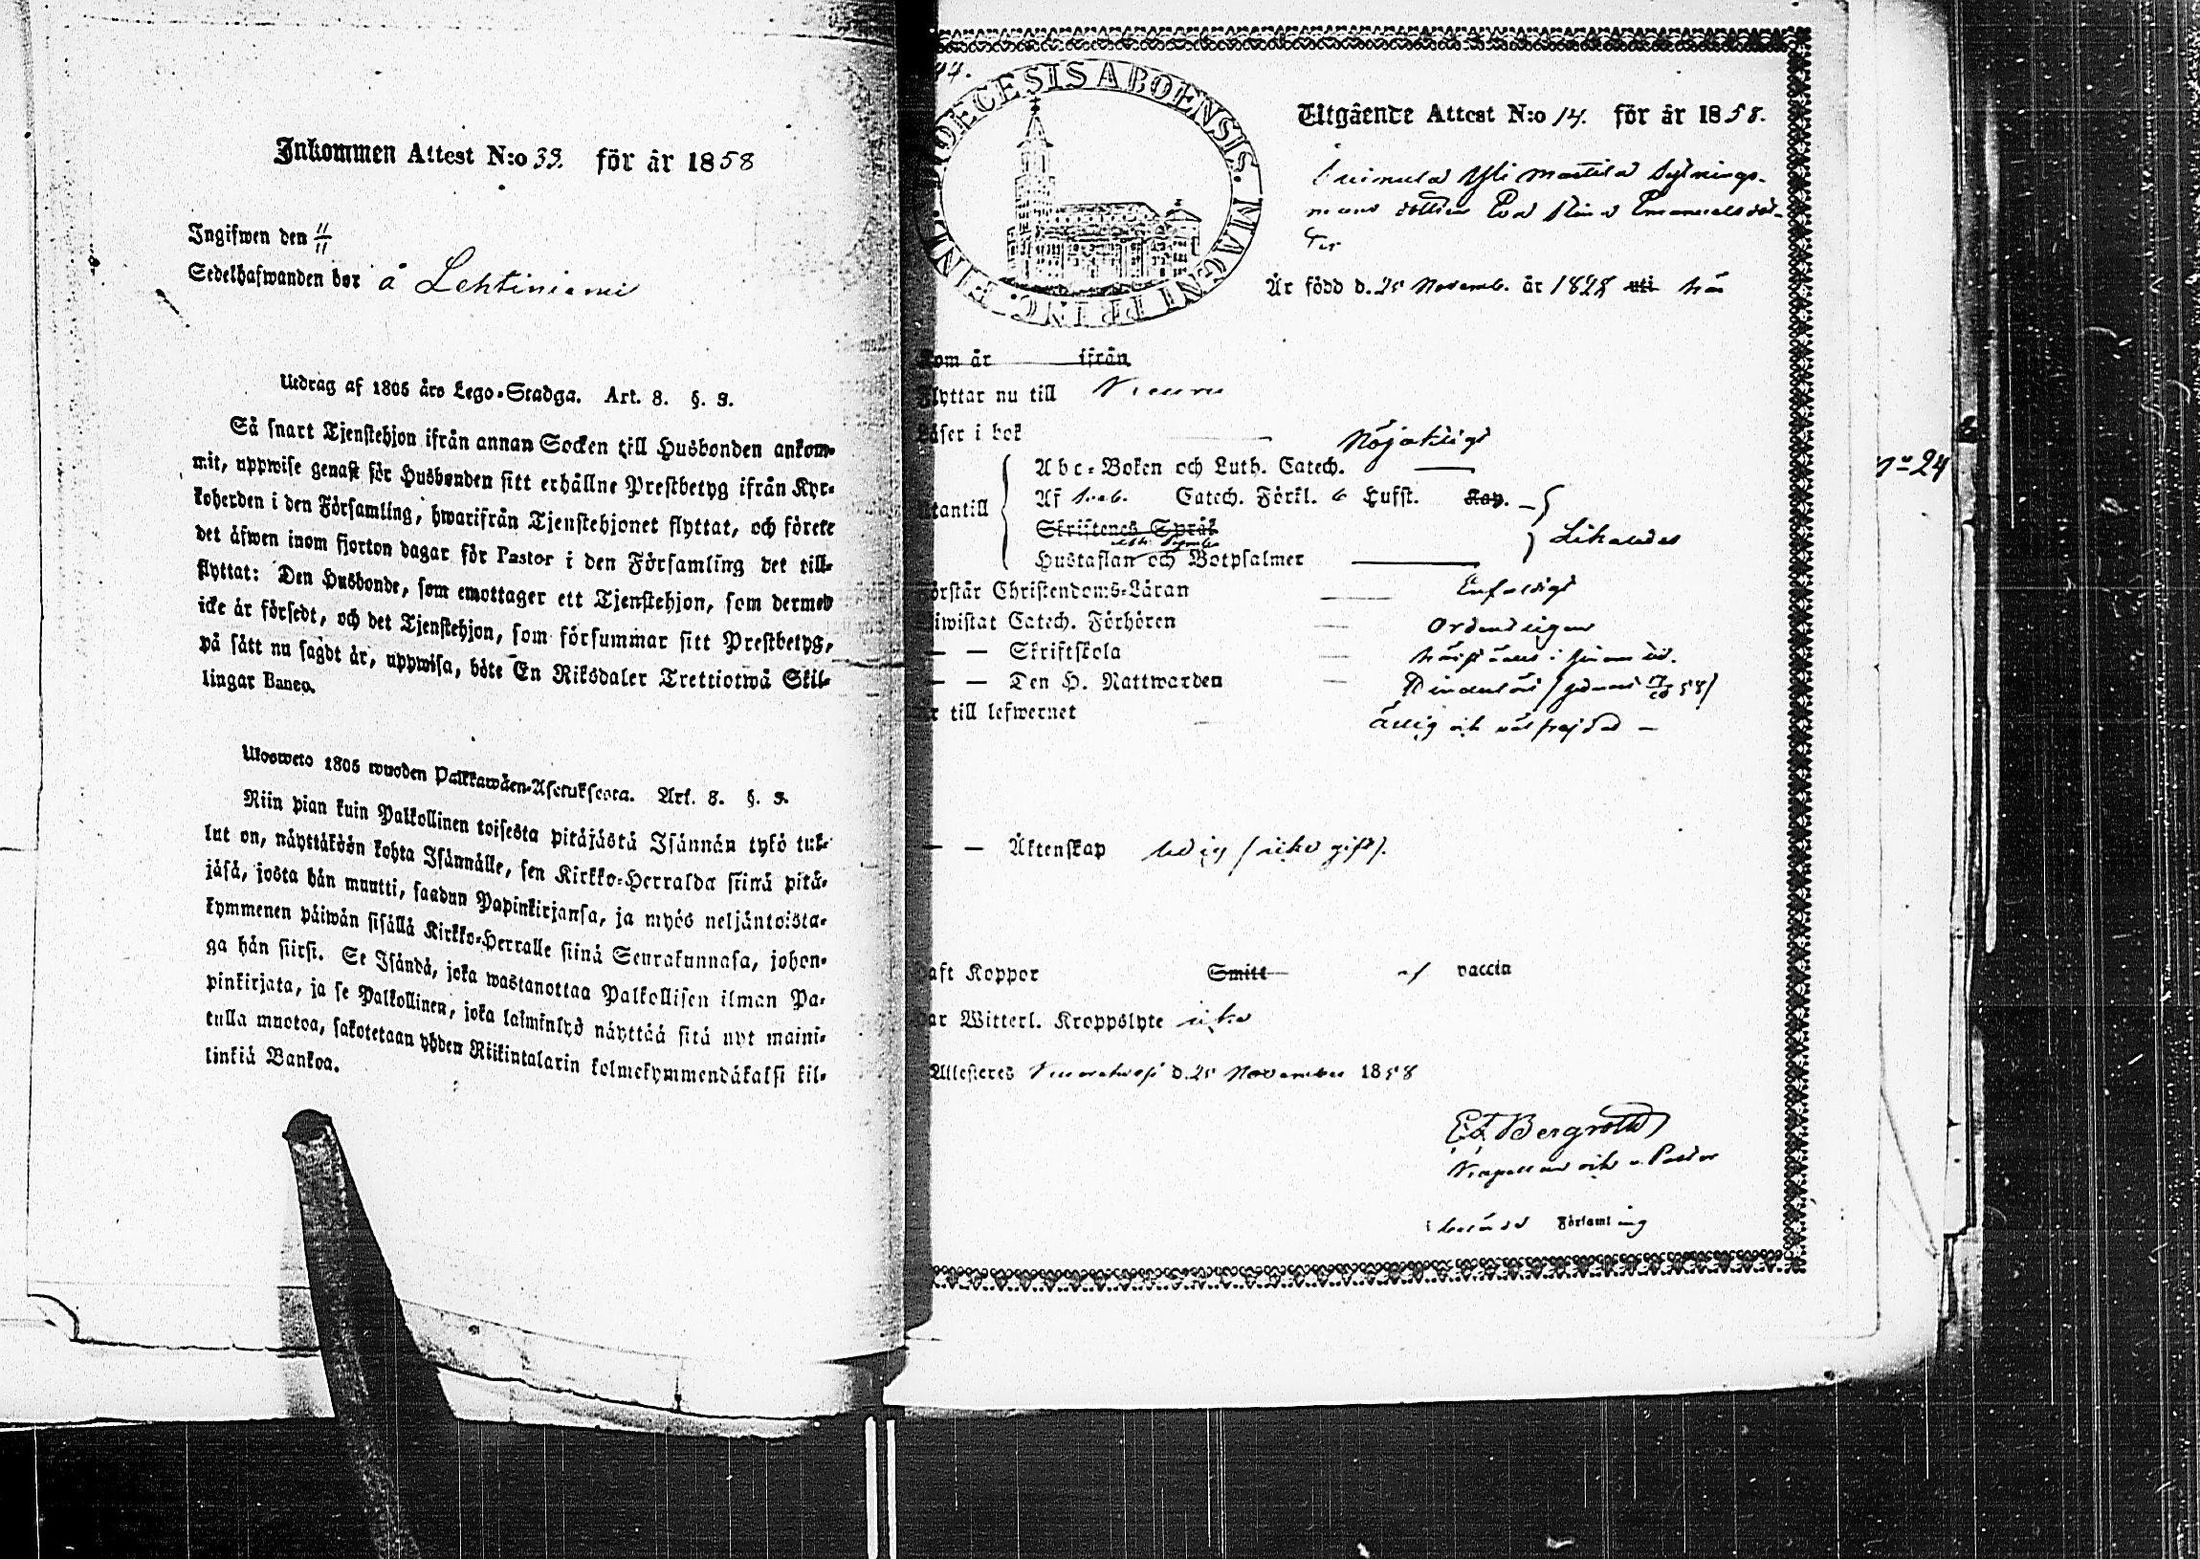 Inkommen Attest N:o 33. för år 1858
Ingifwen den 11/11
Sedelhafwanden bor å Lehtiniemi
Utdrag af 1805 års Lego-Stadga. Art. 8. §. 3.
Så snart Tjenstehjon ifrån annan Socken till Husbonden ankom-
mit, uppwise genast för Husbonden sitt erhållne Prestbetyg ifrån Kyr-
koherden i den Församling, hwarifrån Tjenstehjonet flyttat, och förete
det äfwen inom fjorton dagar för Pastor i den Församling det till-
flyttat: Den Husbonde, som emottager ett Tjenstehjon, som dermed
icke är försedt, och det Tjenstehjon, som försummar sitt Prestbetyg,
på sätt nu sagdt är, uppwisa, böte En Riksdaler Trettiotwå Skil-
lingar Banco.
Ulosweto 1805 wuoden Palkkawäen-Asetuksesta. Art. 8. §. 3.
Niin pian kuin Palkollinen toisesta pitäjästä Isännän tykö tul-
lut on, näyttäköön kohta Isännälle, sen Kirkko-Herralda siinä pitä-
jäsä, josta hän muutti, saadun Papinkirjansa, ja myös neljäntoista-
kymmenen päiwän sisällä Kirkko-Herralle siinä Seurakunnasa, johon-
ga hän siirsi. Se Isändä, joka wastanottaa Palkollisen ilman Pa-
pinkirjata, ja se Palkollinen, joka laiminlyö näyttää sitä nyt maini-
tulla muotoa, sakotetaan yhden Riikintalarin kolmekymmendäkaksi kil-
linkiä Bankoa.
44.
DIOECESIS ABOENSIS. MAGNI PRINC. FINL.
Utgående Attest N:o 14. för år 1858.
Yli Marttila Sytnings-
mans dotter Eva Stina Emanuelsdot-
ter
Är född d. 25 Novemb. år 1828 uti här
Kom år ifrån
Flyttar nu till
Läser i bok Nöjaktligt
Utantill
Abc-Boken och Luth. Catech.
Af Catech. Förkl. 6 Hufst. Kap.
Skriftenes Språk
Hustaflan och Botpsalmer
Likaledes
Förstår Christendoms-Läran Enfaldigt
Biwistat Catech. Förhören Ordentligen
— — Skriftskola
— — Den H. Nattwarden
Är till lefwernet Ärlig och välfrejdad —
— — Äktenskap ledig (icke gift).
Haft Koppor Smitt af vaccin
Har Witterl. Kroppslyte icke
Attesteres d. 25 November 1858
Bergroth
Kapellan och v. Pastor
i Församling
No 24